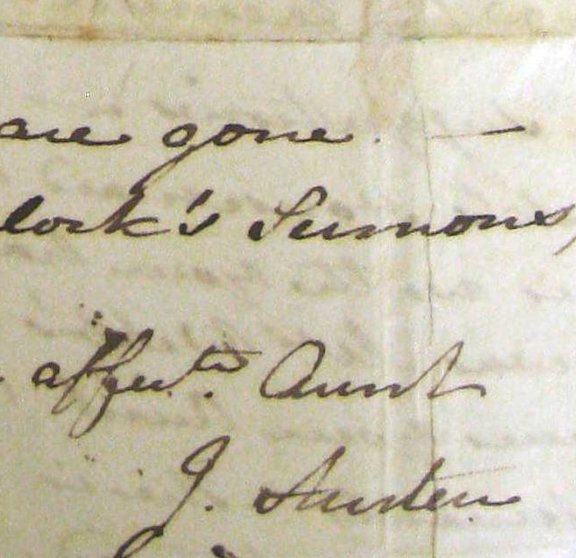 are gone. —
lock's Sermons,
affec.te Aunt
J. Austen